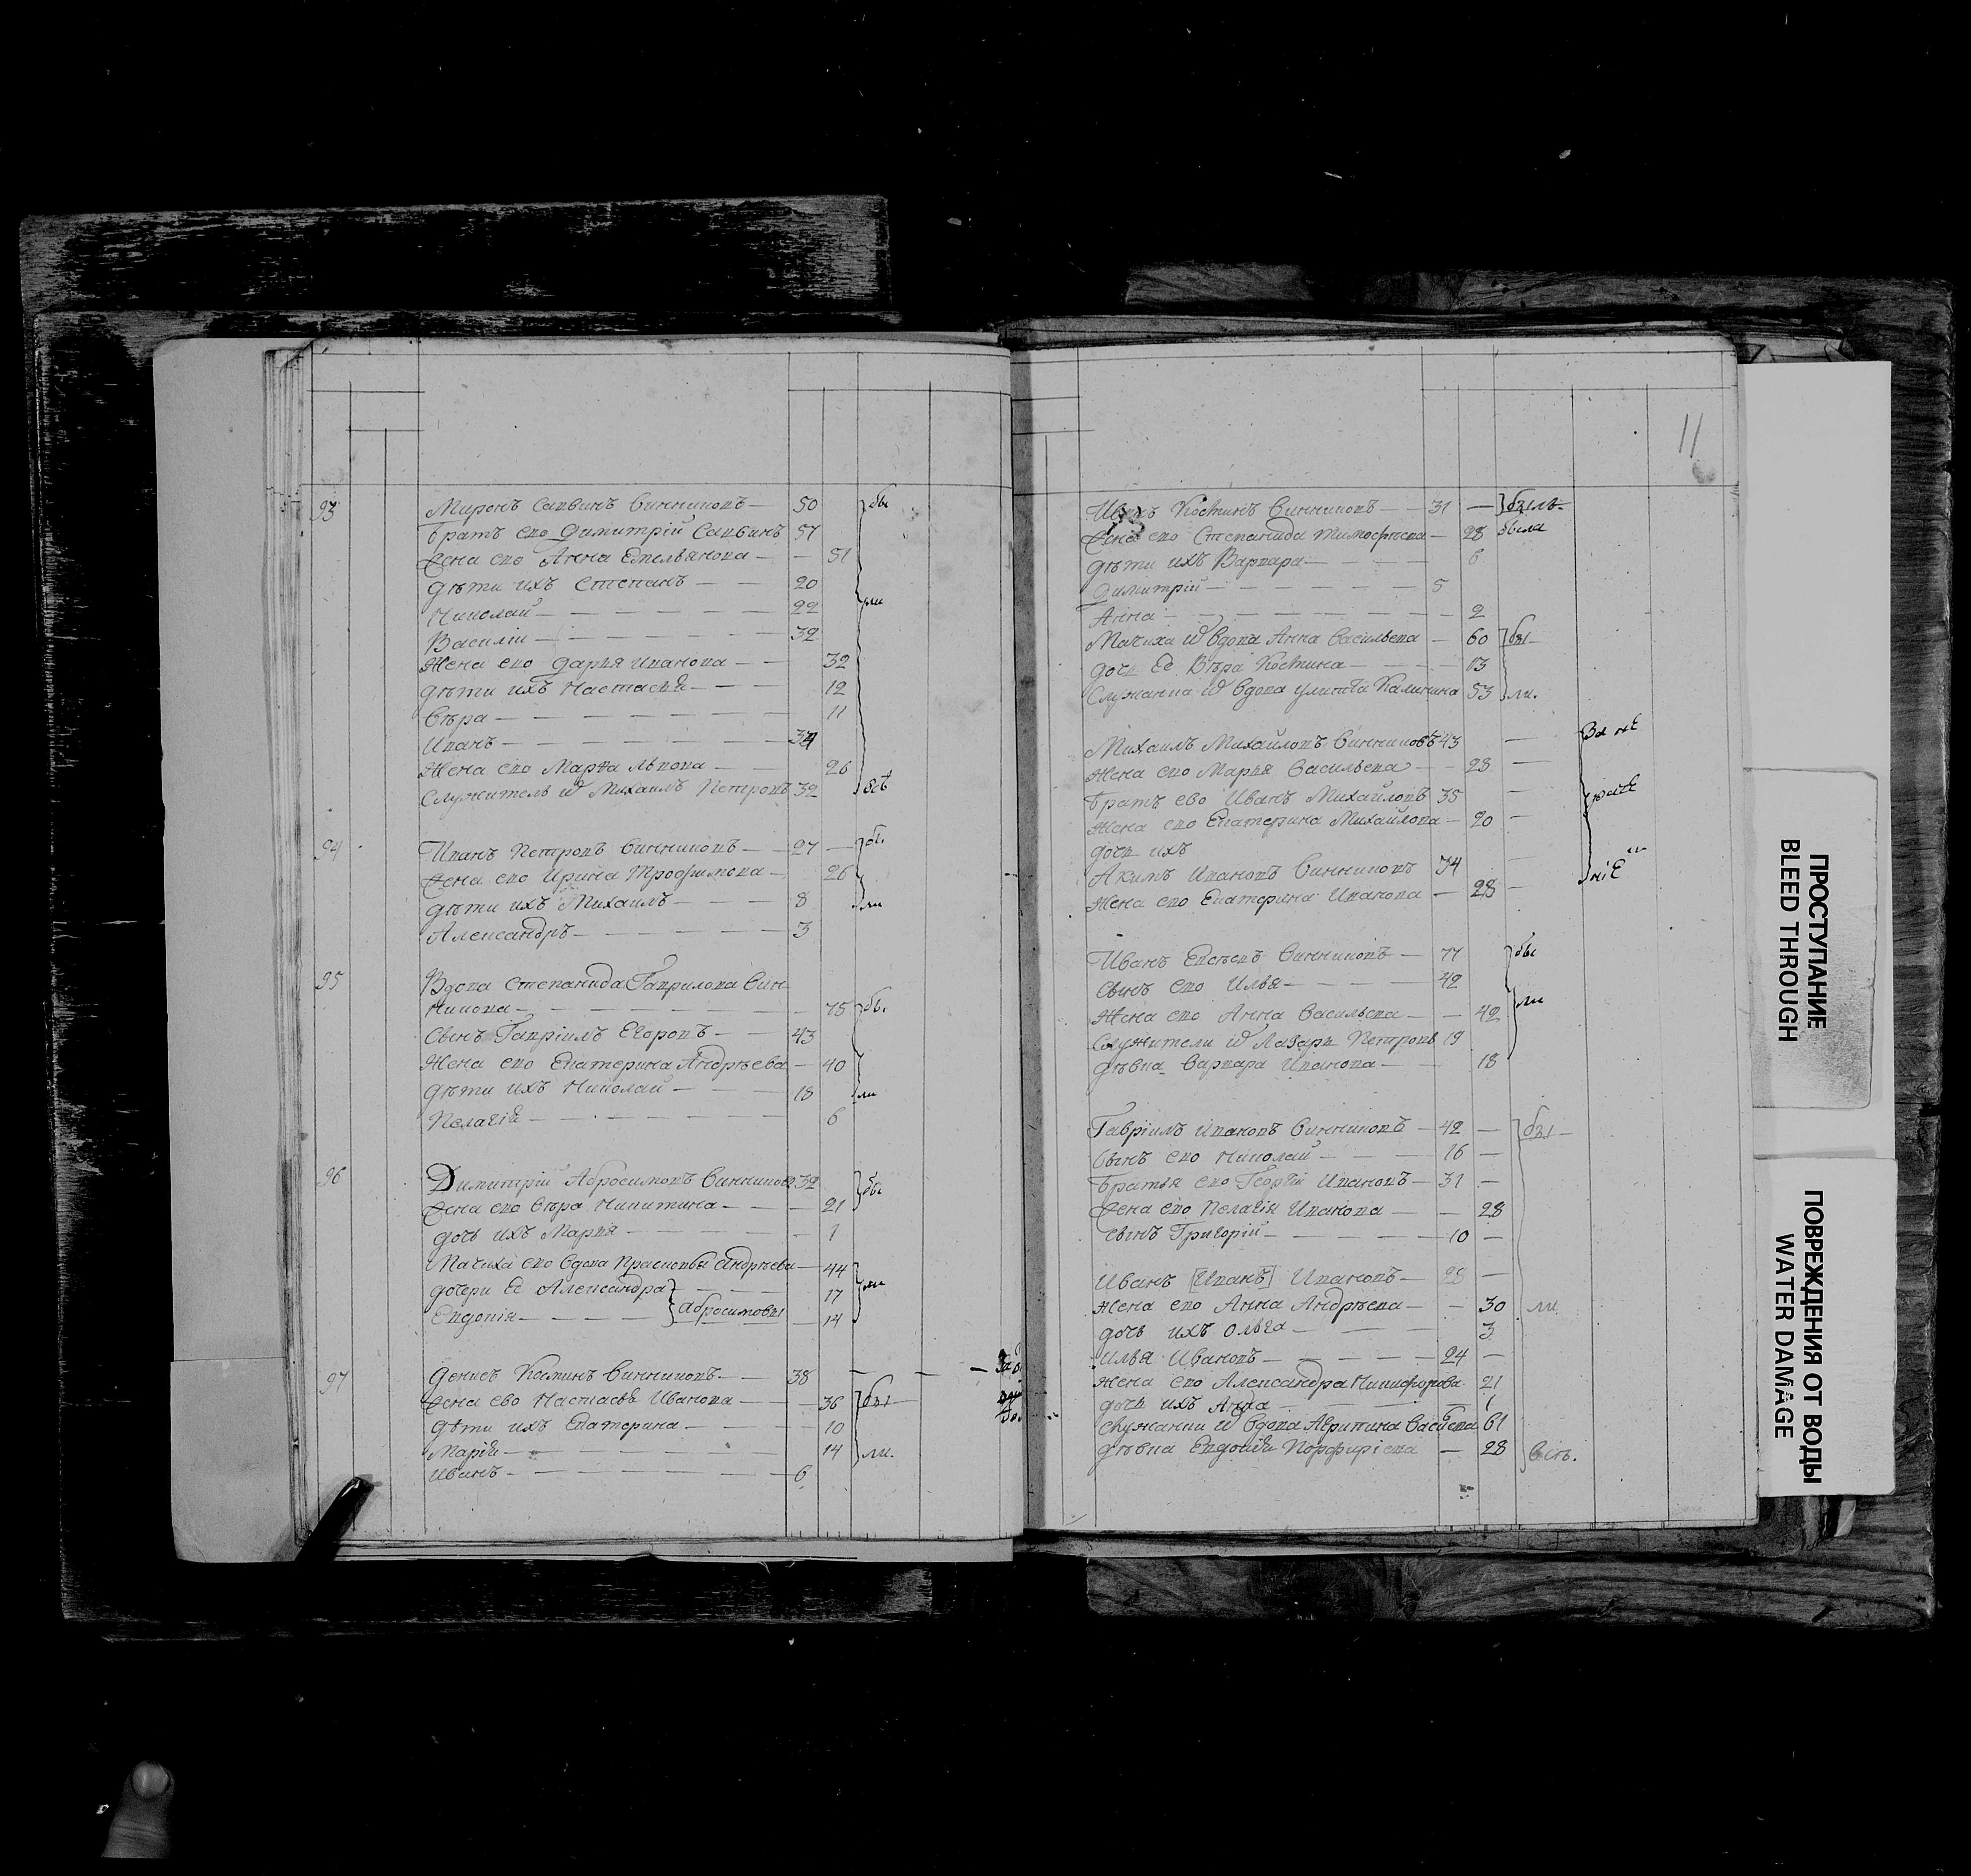 93 Миронъ Саввинъ Винниковъ — 50 бы
Братъ ево Димитрій Саввинъ 57
Жена ево Анна Емельянова — — 51
Дѣти ихъ Степанъ — — 20
Николай — — — — 22 ли
Василіи — — — — 32
Жена ево Дарья Иванова — — 32
Дѣти ихъ Настасья — — 12
Вѣра — — — — 11
Иванъ — — — — 34
Жена ево Марѳа Львова — 26
Служитель Михаилъ Петровъ 32 всѣ
94 Иванъ Петровъ Винниковъ — 27 — бы
Жена ево Ирина Трофимова — 26
Дѣти ихъ Михаилъ — — 8 ли
Александръ — — — 3
95 Вдова Степанида Гаврилова Вин
никова — — — — 75 бы
Сынъ Гавріилъ Егоровъ — 43
Жена ево Екатерина Андрѣева — 40
Дѣти ихъ Николай — — 18 ли
Пелагія — — — — 6
96 Димитрій Абросимовъ Винниковъ 32 бы
Жена ево Вѣра Никитина — — 21
дочь ихъ Марья — — — 1
Мачиха ево вдова Прасковья Андрѣева — 44
дочери Ее Александра — — 17 ли
Абросимовы
Евдокія — — — 14
97 Денисъ Костинъ Винниковъ — 38
Жена ево Настасья Иванова — — 36 бы
Дѣти ихъ Екатерина — — 10
Марія — — — — 14 ли.
Иванъ — — — — 6
11
Иванъ Костинъ Винниковъ — 31 — былъ
Жена ево Степанида Тимофѣева — 28 была
дѣти ихъ Варвара — — 6
Димитрій — — — 5
Анна — — — — 2
Мачиха вдова Анна Васильева — 60 бы
дочь Ее Вѣра Костина — — 13
Служанка вдова Улита Калинина 53 ли.
Михаилъ Михайловъ Винниковъ 43 — За не
Жена ево Марья Васильева — 23 —
Братъ ево Иванъ Михайловъ 35 —
Жена ево Екатерина Михайлова — 20 —
дочь ихъ
Акимъ Ивановъ Винниковъ 74 — ніе
Жена ево Екатерина Иванова — 28 —
Иванъ Евсѣевъ Винниковъ — 77 бы
сынъ ево Илья — — 42
ли
Жена ево Анна Васильева — — 42
Служители Лазарь Петровъ 19
дѣвка Варвара Иванова — — 18
Гавріилъ Ивановъ Винниковъ — 42 — бы
Сынъ ево Николай — — 16 —
Братья ево Георгій Ивановъ — 31 —
Жена ево Пелагія Иванова — — 28
сынъ Григорій — — — 10 —
Иванъ [Иванъ] Ивановъ — 28 —
Жена ево Анна Андрѣева — — 30 ли
дочь ихъ Ольга — — — 3
Илья Ивановъ — — — 24 —
Жена ево Александра Никифорова 21
дочь ихъ Анна — — 1
служанки вдова Васьева 61
дѣвка Евдокія Порфиріева — 28 всѣ.
ПРОСТУПАНИЕ
BLEED THROUGH
ПОВРЕЖДЕНИЯ ОТ ВОДЫ
WATER DAMAGE